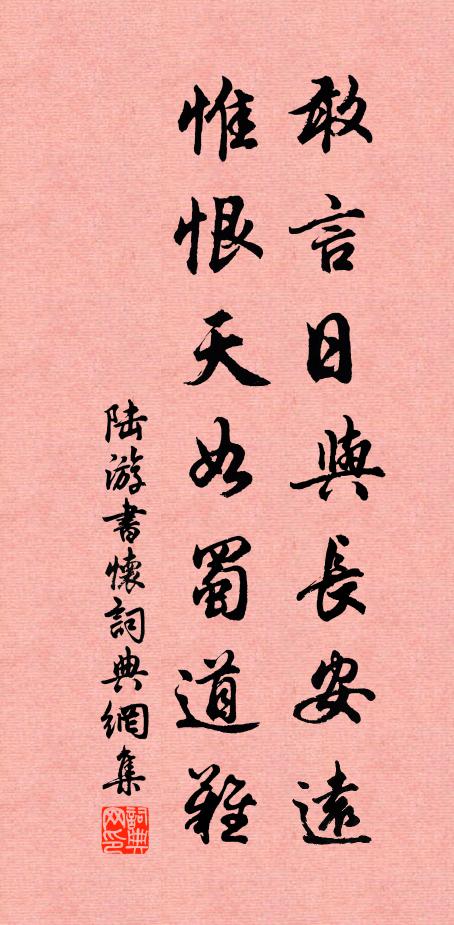 敢言日與長安遠
惟恨天如蜀道難
陸游書懷詞典網集
詞典网印